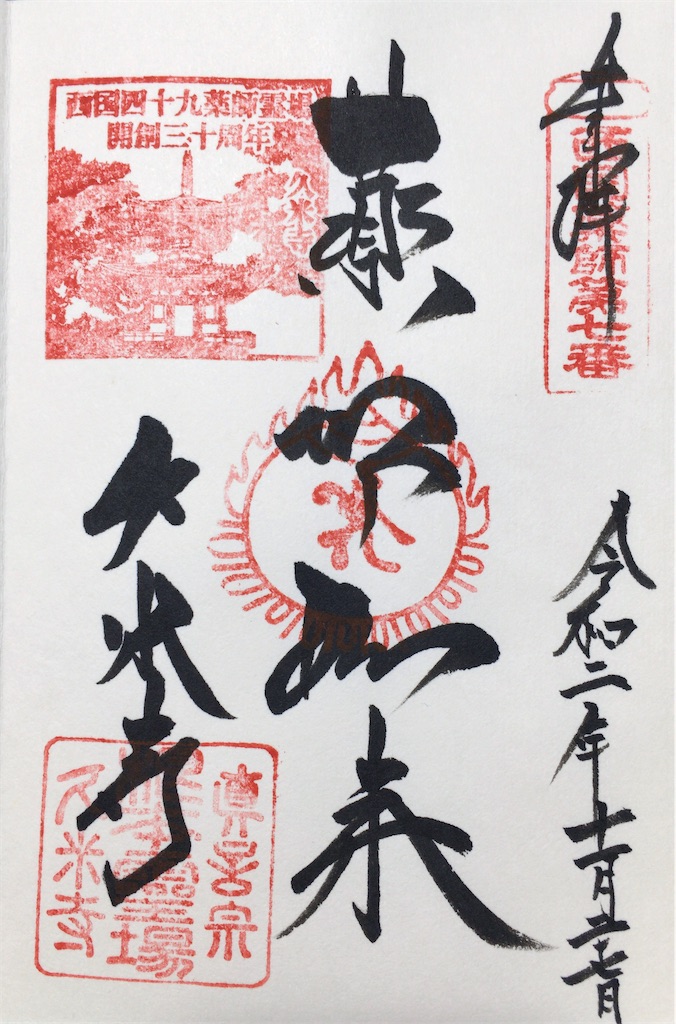 奉拝
西国薬師第七番
令和二年十一月二十七日
薬師如来
西国四十九薬師霊場
開創三十周年
久米寺
久米寺
真言宗
霊場
久米寺